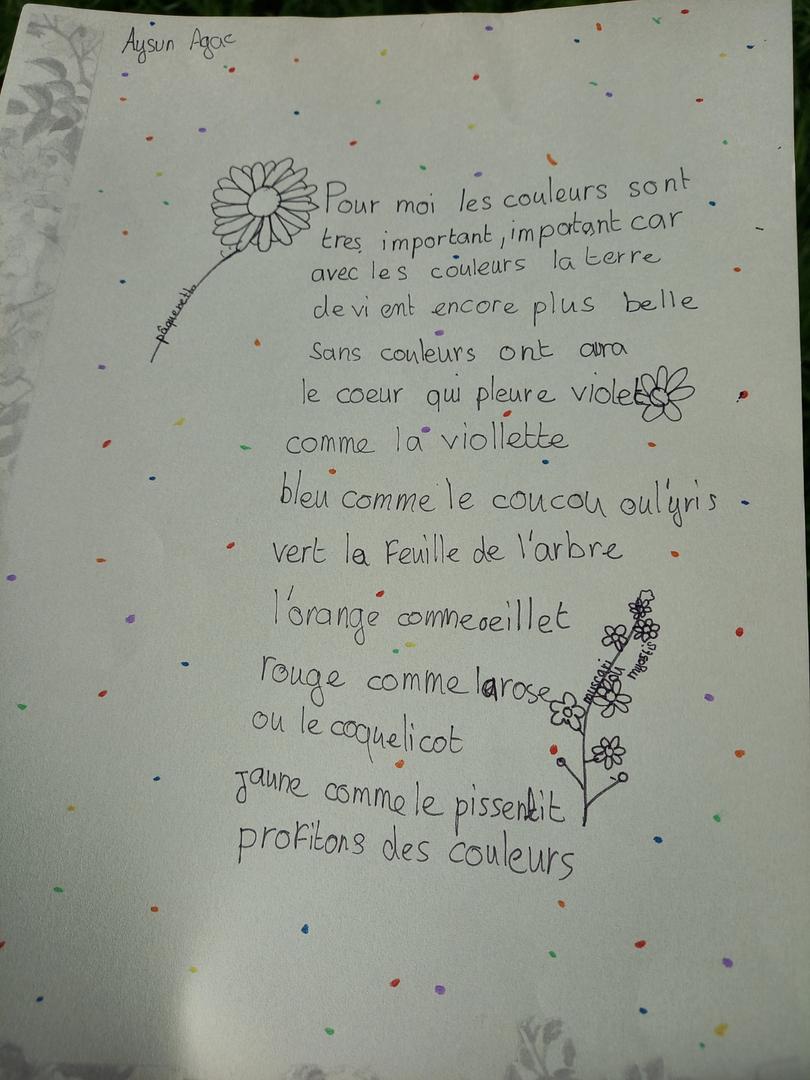 Aysun Agac
Pour moi les couleurs sont
tres important, impotant car
avec les couleurs la terre
devient encore plus belle
Sans couleurs ont aura
le coeur qui pleure violet
comme la viollette
bleu comme le coucou oul'yris
vert la Feuille de l'arbre
l'orangé comme oeillet
rouge comme larose
ou le coquelicot
jaune comme le pissenlit
profitons des couleurs
pâquerette
muscari
ou
myosotis